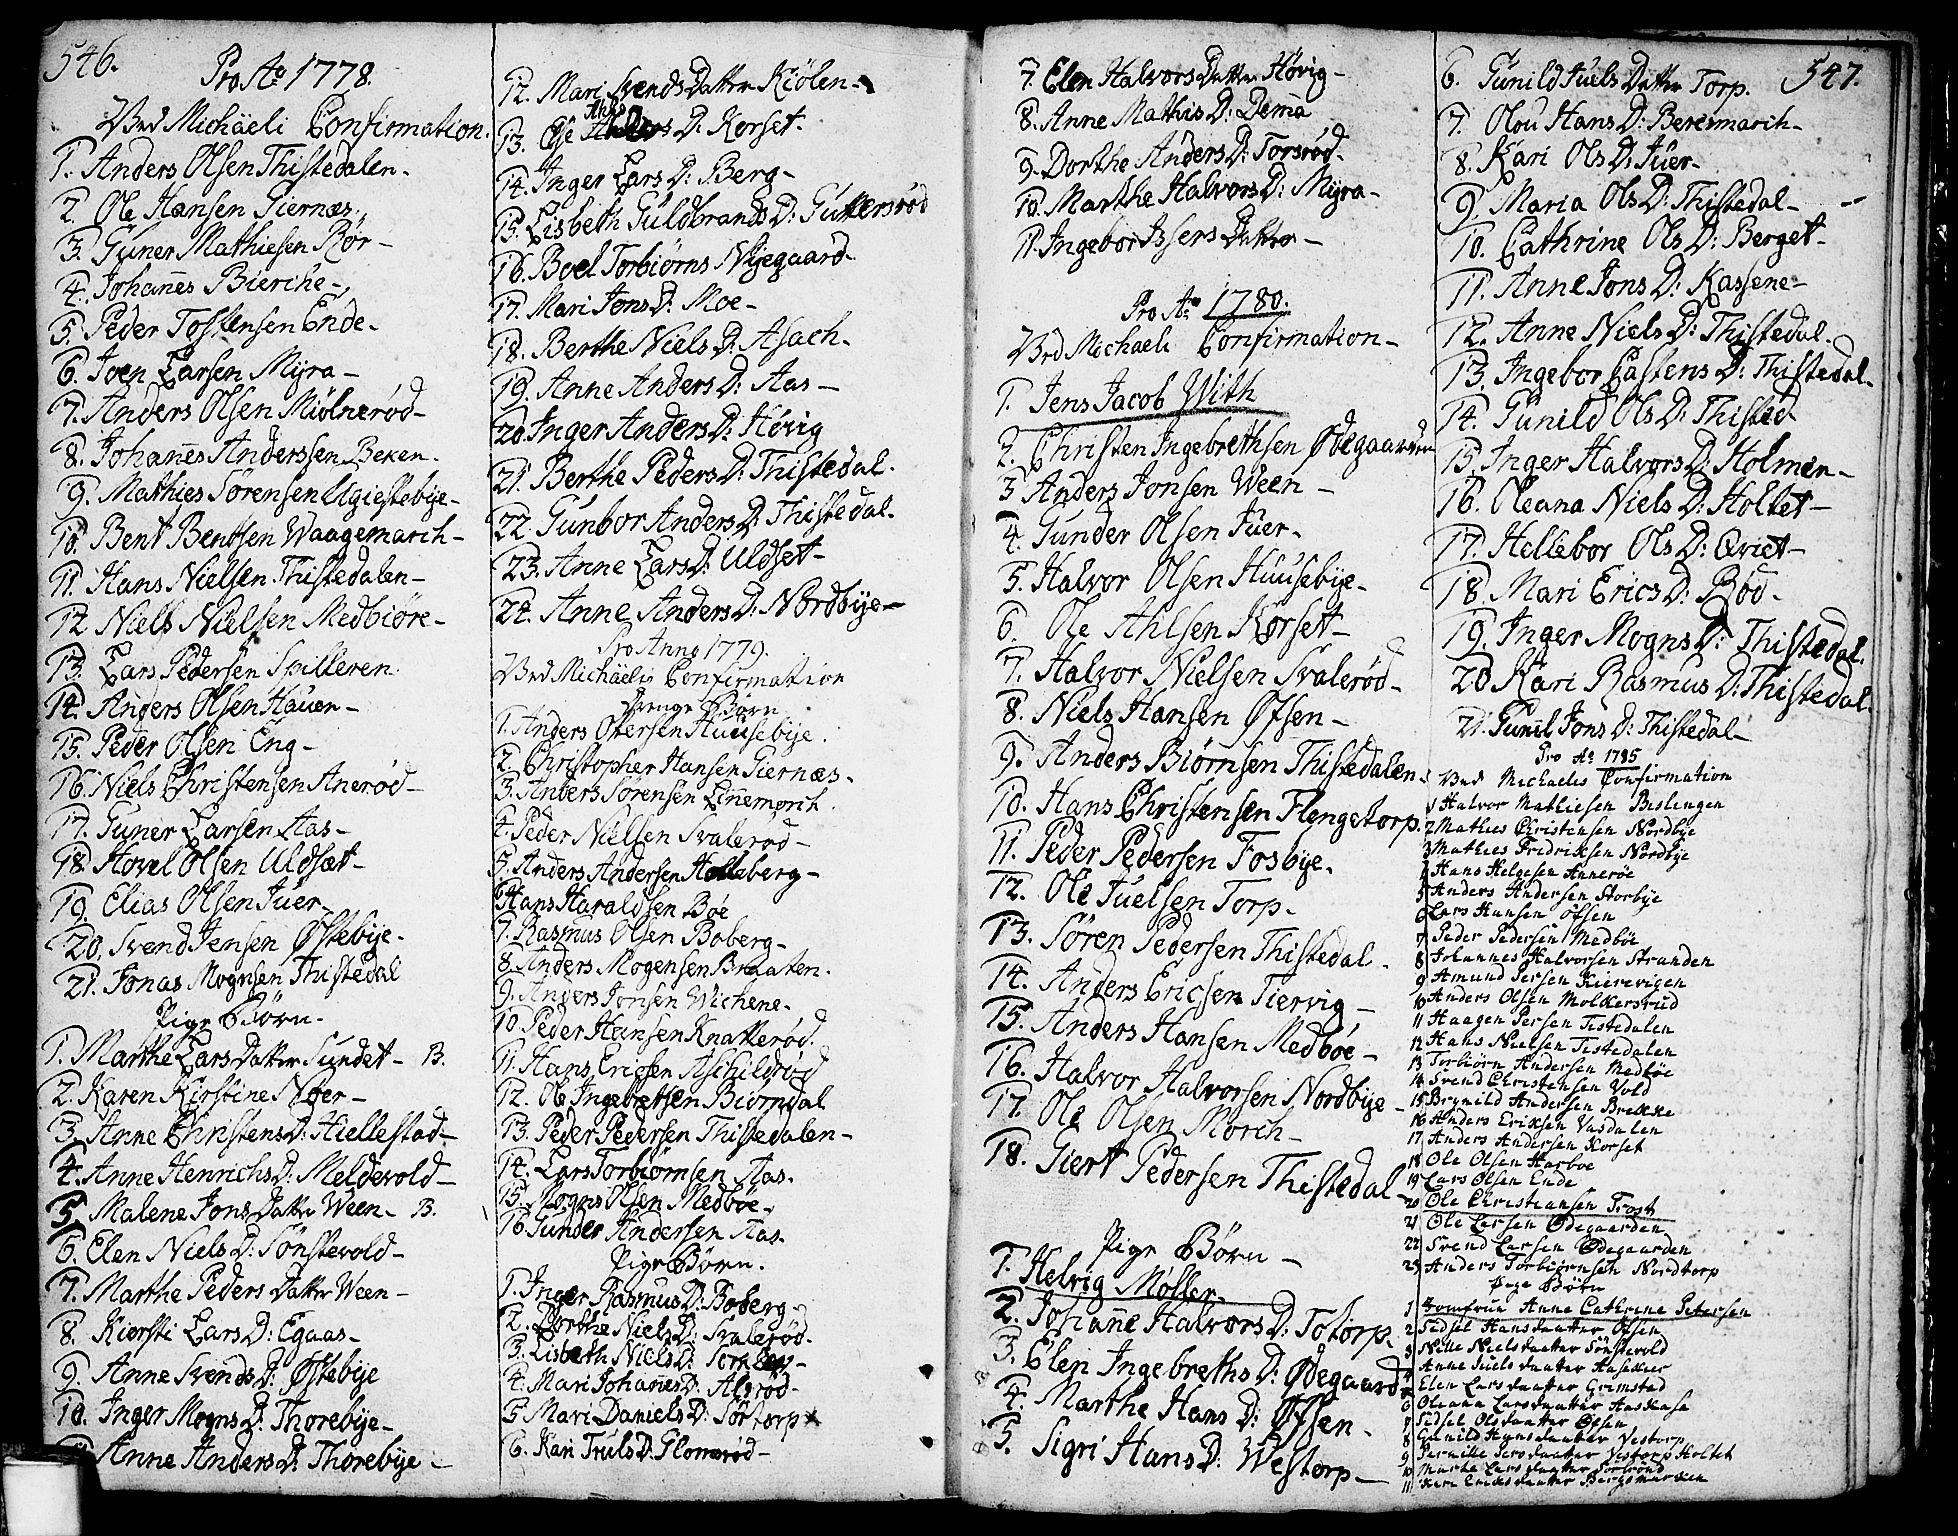 546.
Pro Ao 1778.
Ved Michäeli Confirmation.
1. Anders Olsen Thistedalen.
2. Ole Hansen Giernæs.
3. Guner Mathiesen Rör
4. Johan̄es Bierche
5. Peder Tostensen Ende.
6. Joen Larsen Myra
7. Anders Olsen Miölnerød
8. Johan̄es Anderssen Beken.
9. Mathies Sörensen
10. Bent Bentsen Waagemarch
11. Hans Nielsen Thistedalen
12. Niels Nielsen Medbiöre
13. Lars Pedersen Spilleren
14. Anders Olsen Hauen
15. Peder Olsen Eng
16. Niels Christensen Anerød
17. Guner Larsen Aas
18. Hovel Olsen Uldsæt
19. Elias Olsen Juer
20. Svend Jensen Østebye.
21. Jonas Mognsen Thistedal
Pige Börn.
1. Marthe Lars Datter Sundet B.
2. Karen Kirstine Næer
3. Anne Christens D: Hiellestad
4. Anne Henrichs D: Meldevold
5. Malene Jons Datter Ween B.
6. Elen Niels D: Sönstevold
7. Marthe Peders Datter Ween
8. Kiersti Lars D: Egaas
9. Anne Svends D: Østebye
10. Inger Mogns D: Thorebye
Anne Anders D: Thorebye
12. Mari Svends Datter Kiölen
13. D: Korset.
14. Inger Lars D: Berg
15. Lisbeth Guldbrands D: Guttersrød
16. Boel Torbiörns Nyegaard
17. Mari Jons D: Moe
18. Berthe Niels D: Asach.
19. Anne Anders D: Aas
20. Inger Anders D: Høvig
21. Berthe Peders D: Thistedal.
22. Gunbor Anders D: Thistedal.
23. Anne Lars D: Uldset
24. Anne Anders D: Nordbye
Pro Anno 1779.
Ved Michäelis Confirmation
Drenge Börn
1. Anders Huusebye.
2. Christopher Hansen Giernæs.
3. Anders Sörensen Linemarch.
4. Peder Nielsen Svalerød
5. Anders Andersen Holleberg
6. Hans Haraldsen Böe
7. Rasmus Olsen Boberg
8. Anders Mogensen Braaten.
9. Anders Jonsen Wichene.
10. Peder Hansen Knatterød.
11. Hans Ericsen Aschildrød
12. Ole Ingebretsen Biörndal
13. Peder Pedersen Thistedalen
14. Lars Torbiörnsen Aas.
15. Mogns Olsen Medböe
16. Gunder Andersen Aas.
Pige Börn.
1. Inger Rasmus D: Boberg
2. Dorthe Niels D: Svalerød.
3. Lisbeth Niels D:
4. Mari Johan̄es D: Alsrød
5. Mari Daniels D: Sörtorp
6. Kari Truls D: Glomsrød
7. Elen Halvors Datter Høvig
8. Anne Mathis D: Dem̄a
9. Dorthe Anders D: Torsrød.
10. Marthe Halvors D: Myra
11. Ingebor Issers Datter
Pro Ao 1780.
Ved Michaeli Confirmation
1. Jens Jacob With
2. Christen Ingebrethsen Ødegaarden
3 Anders Jonsen Ween
4. Gunder Olsen Juer
5. Halvor Olsen Huusebye
6. Ole Ahlsen Korset
7. Halvor Nielsen Svalerød
8. Niels Hansen Øfsen
9. Anders Biörnsen Thistedalen.
10. Hans Christensen Flengetorp.
11. Peder Pedersen Fosbye.
12. Ole Juelsen Torp.
13. Sören Pedersen Thistedal.
14. Anders Ericsen Tiervig
15. Anders Hansen Medböe
16. Halvor Halvorsen Nordbye
17. Ole Olsen Morch
18. Giert Pedersen Thistedal
Pige Börn
1. Helvig Møller.
2. Johan̄e Halvors D: Totorp.
3. Elen Ingebreths D: Ødegaard
4. Marthe Hans D: Øfsen.
5. Sigri Hans D: Westorp
547.
6. Gunild Juels Datter Torp.
7. Olou Hans D: Beresmarch
8. Kari Ols D: Juer
9. Maria Ols D: Thistedal
10. Cathrine Ols D: Berget
11. Anne Jons D: Kassene
12. Anne Niels D: Thistedal.
13. Ingebor Castens D: Thistedal.
14. Gunild Ols D: Thisted
15. Inger Halvors D: Holmen
16. Oleana Niels D: Holtet
17. Hellebor Ols D: Qviet
18. Mari Erics D: Bod
19. Inger Mogns D: Thistedal.
20 Kari Rasmus D: Thistedal.
21. Gunil Jons D: Thistedal
Pro Ao 1785
Ved Michaelis Confirmation
1 Halvor Mathiesen Bislingen
2 Mathies Christensen Nordbye
3 Mathies Fridriksen Nordbye
4 Hans Helgesen Anneröe
5 Anders Andersen Storbye
6 Lars Hansen Öfsen
7 Peder Pedersen Medböe
8 Johannes Halvorsen Stranden
9 Amund Persen Kierevigen
10 Anders Olsen Molkersrud
11 Haagen Persen Tistedalen
12 Hans Nielsen Tistedalen
13 Torbiörn Andersen Medböe
14 Svend Christensen Vold
15 Brynild Andersen Brekke
16 Anders Eriksen Vasdalen
17 Anders Andersen Korset
18 Ole Olsen Harboe
19 Lars Olsen Ende
20 Ole Christiansen Trost
21 Ole Larsen Ødegaarden
22 Svend Larsen Ødegaarden
23 Anders Torbiörnsen Nordtorp
Pige Börn
1 Jomfrue Anne Cathrine Petersen
2 Sidsel Hansdaatter Öfsen
3 Nille Nielsdaatter Sönstevold
4 Anne Nielsdaatter
5 Elen Larsdaatter Grimstad
6 Oleana Larsdaatter
7 Sidsel Olsdaatter
8 Gunild Hansdaatter Vestorp
9 Pernille Persdaatter Vestorp Holtet
10 Marthe Larsdaatter
11 Kari Eriksdaatter Bergsmarken